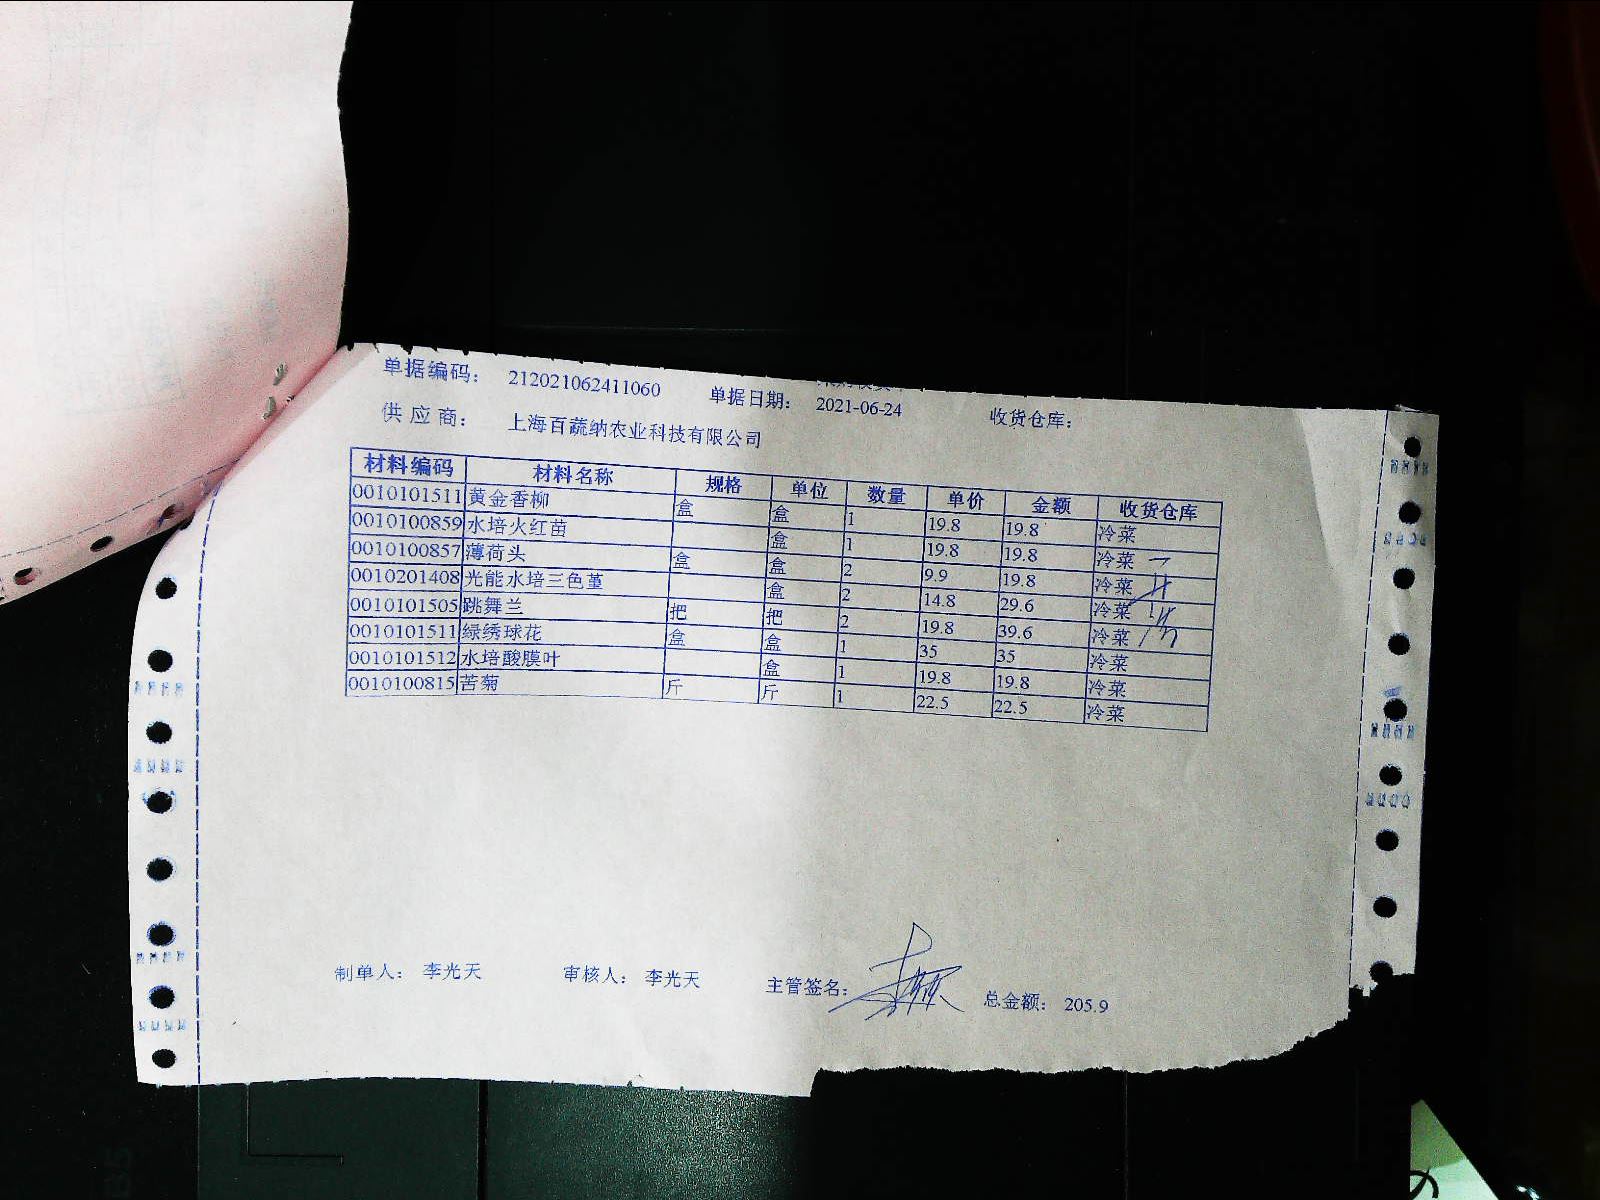 单据编码: 212021062411060 单据日期: 2021-06-24 收货仓库:
供应商: 上海百蔬纳农业科技有限公司
材料编码 材料名称 规格 单位 数量 单价 金额 收货仓库
0010101511 黄金香柳 盒 盒 1 19.8 19.8 冷菜
0010100859 水培火红苗 盒 1 19.8 19.8 冷菜
0010100857 薄荷头 盒 盒 2 9.9 19.8 冷菜
0010201408 光能水培三色堇 盒 2 14.8 29.6 冷菜
0010101505 跳舞兰 把 把 2 19.8 39.6 冷菜
0010101511 绿绣球花 盒 盒 1 35 35 冷菜
0010101512 水培酸膜叶 盒 1 19.8 19.8 冷菜
0010100815 苦菊 斤 斤 1 22.5 22.5 冷菜
制单人: 李光天 审核人: 李光天 主管签名: 总金额: 205.9